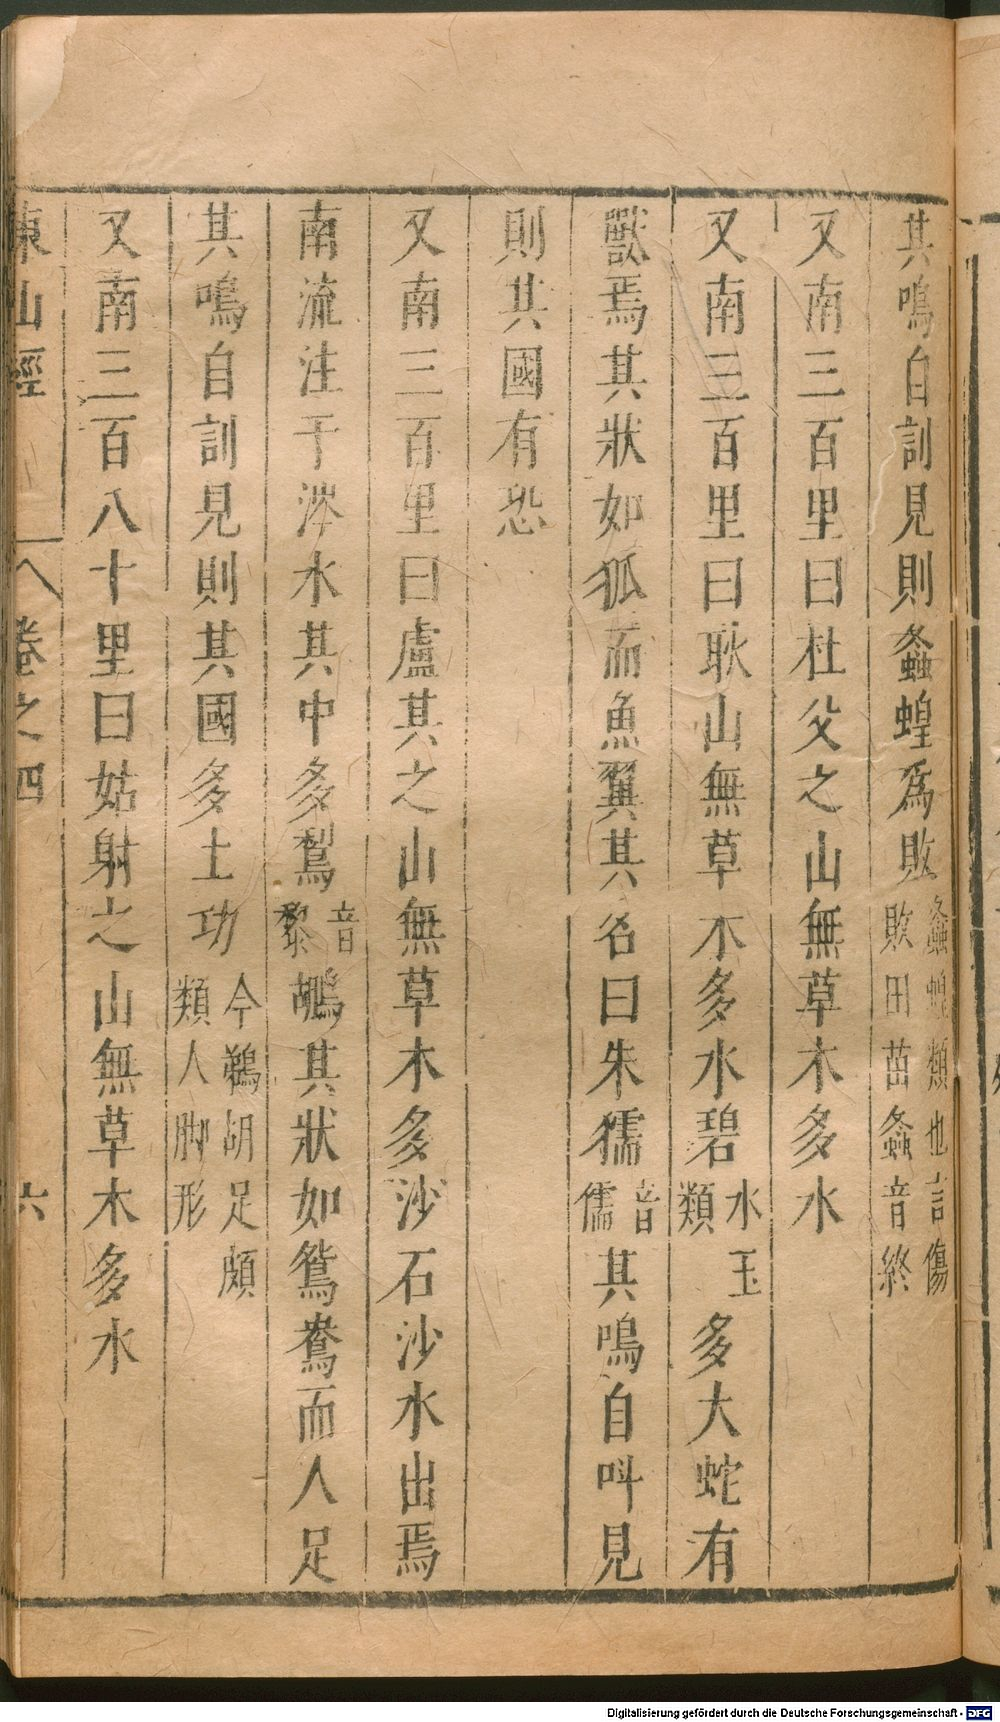 其鳴自訓見則螽蝗爲敗螽蝗類也言傷敗田苗螽音終
又南三百里曰杜父之山無草木多水
又南三百里曰耿山無草木多水碧水玉類多大蛇有
獸焉其狀如狐而魚翼其名曰朱獳音儒其鳴自叫見
則其國有恐
又南三百里曰盧其之山無草木多沙石沙水出焉
南流注于涔水其中多鴷音黎鶘其狀如鴛鴦而人足
其鳴自訓見則其國多土功今鵜胡足頗類人脚形
又南三百八十里曰姑射之山無草木多水
東山經 卷之四 六
Digitalisierung gefördert durch die Deutsche Forschungsgemeinschaft - DFG